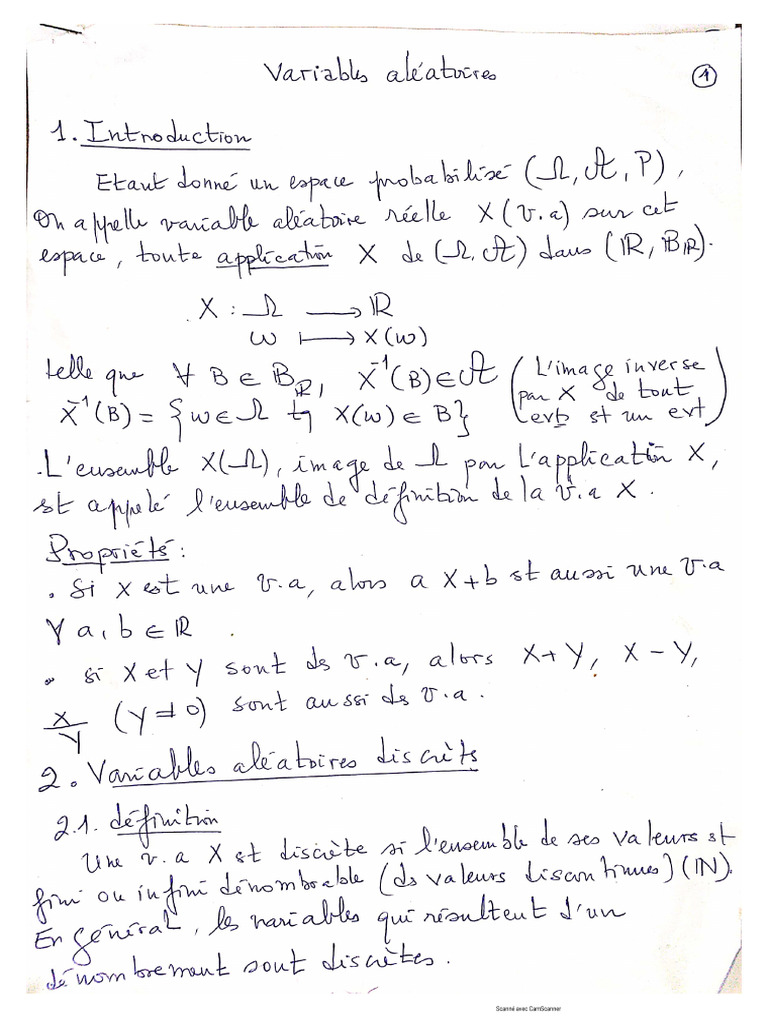 Variables aléatoires
1
1. Introduction
Etant donné un espace probabilisé (Ω, 𝒜, P),
On appelle variable aléatoire réelle X (v.a) sur cet
espace, toute application X de (Ω, 𝒜) dans (ℝ, Bℝ).
X : Ω ⟶ ℝ
ω ⟼ X(ω)
telle que ∀ B ∈ Bℝ, X⁻¹(B) ∈ 𝒜 (L'image inverse
par X de tout
X⁻¹(B) = {ω ∈ Ω tq X(ω) ∈ B} evt st un evt)
. L'ensemble X(Ω), image de Ω par L'application X,
st appelé l'ensemble de définition de la v.a X.
Propriété :
. Si X est une v.a, alors a X + b st aussi une v.a
∀ a, b ∈ ℝ
. si X et Y sont ds v.a, alors X + Y, X − Y,
X/Y (Y ≠ 0) sont aussi ds v.a.
2. Variables aléatoires discrèts
2.1. définition
Une v.a X st discrète si l'ensemble de ses valeurs st
fini ou infini dénombrable (ds valeurs discontinues) (ℕ).
En général, ls variables qui résultent d'un
dénombrement sont discrètes.
Scanné avec CamScanner